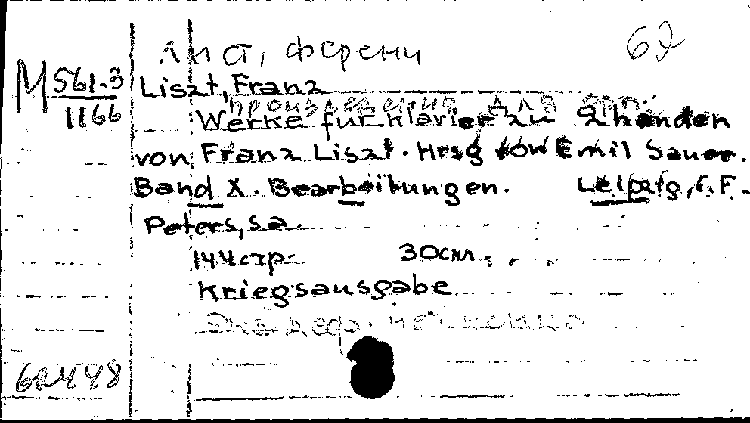 Лист, Ференц
62
M 561.3
1166
Liszt, Franz
произведения для фп.
Werke für Klavier zu 2 händen
von Franz Liszt. Hrsg von Emil Sauer.
Band X. Bearbeitungen. Leipzig, C. F.
Peters, s.a.
144 стр. 30 см.
Kriegsausgabe
62448